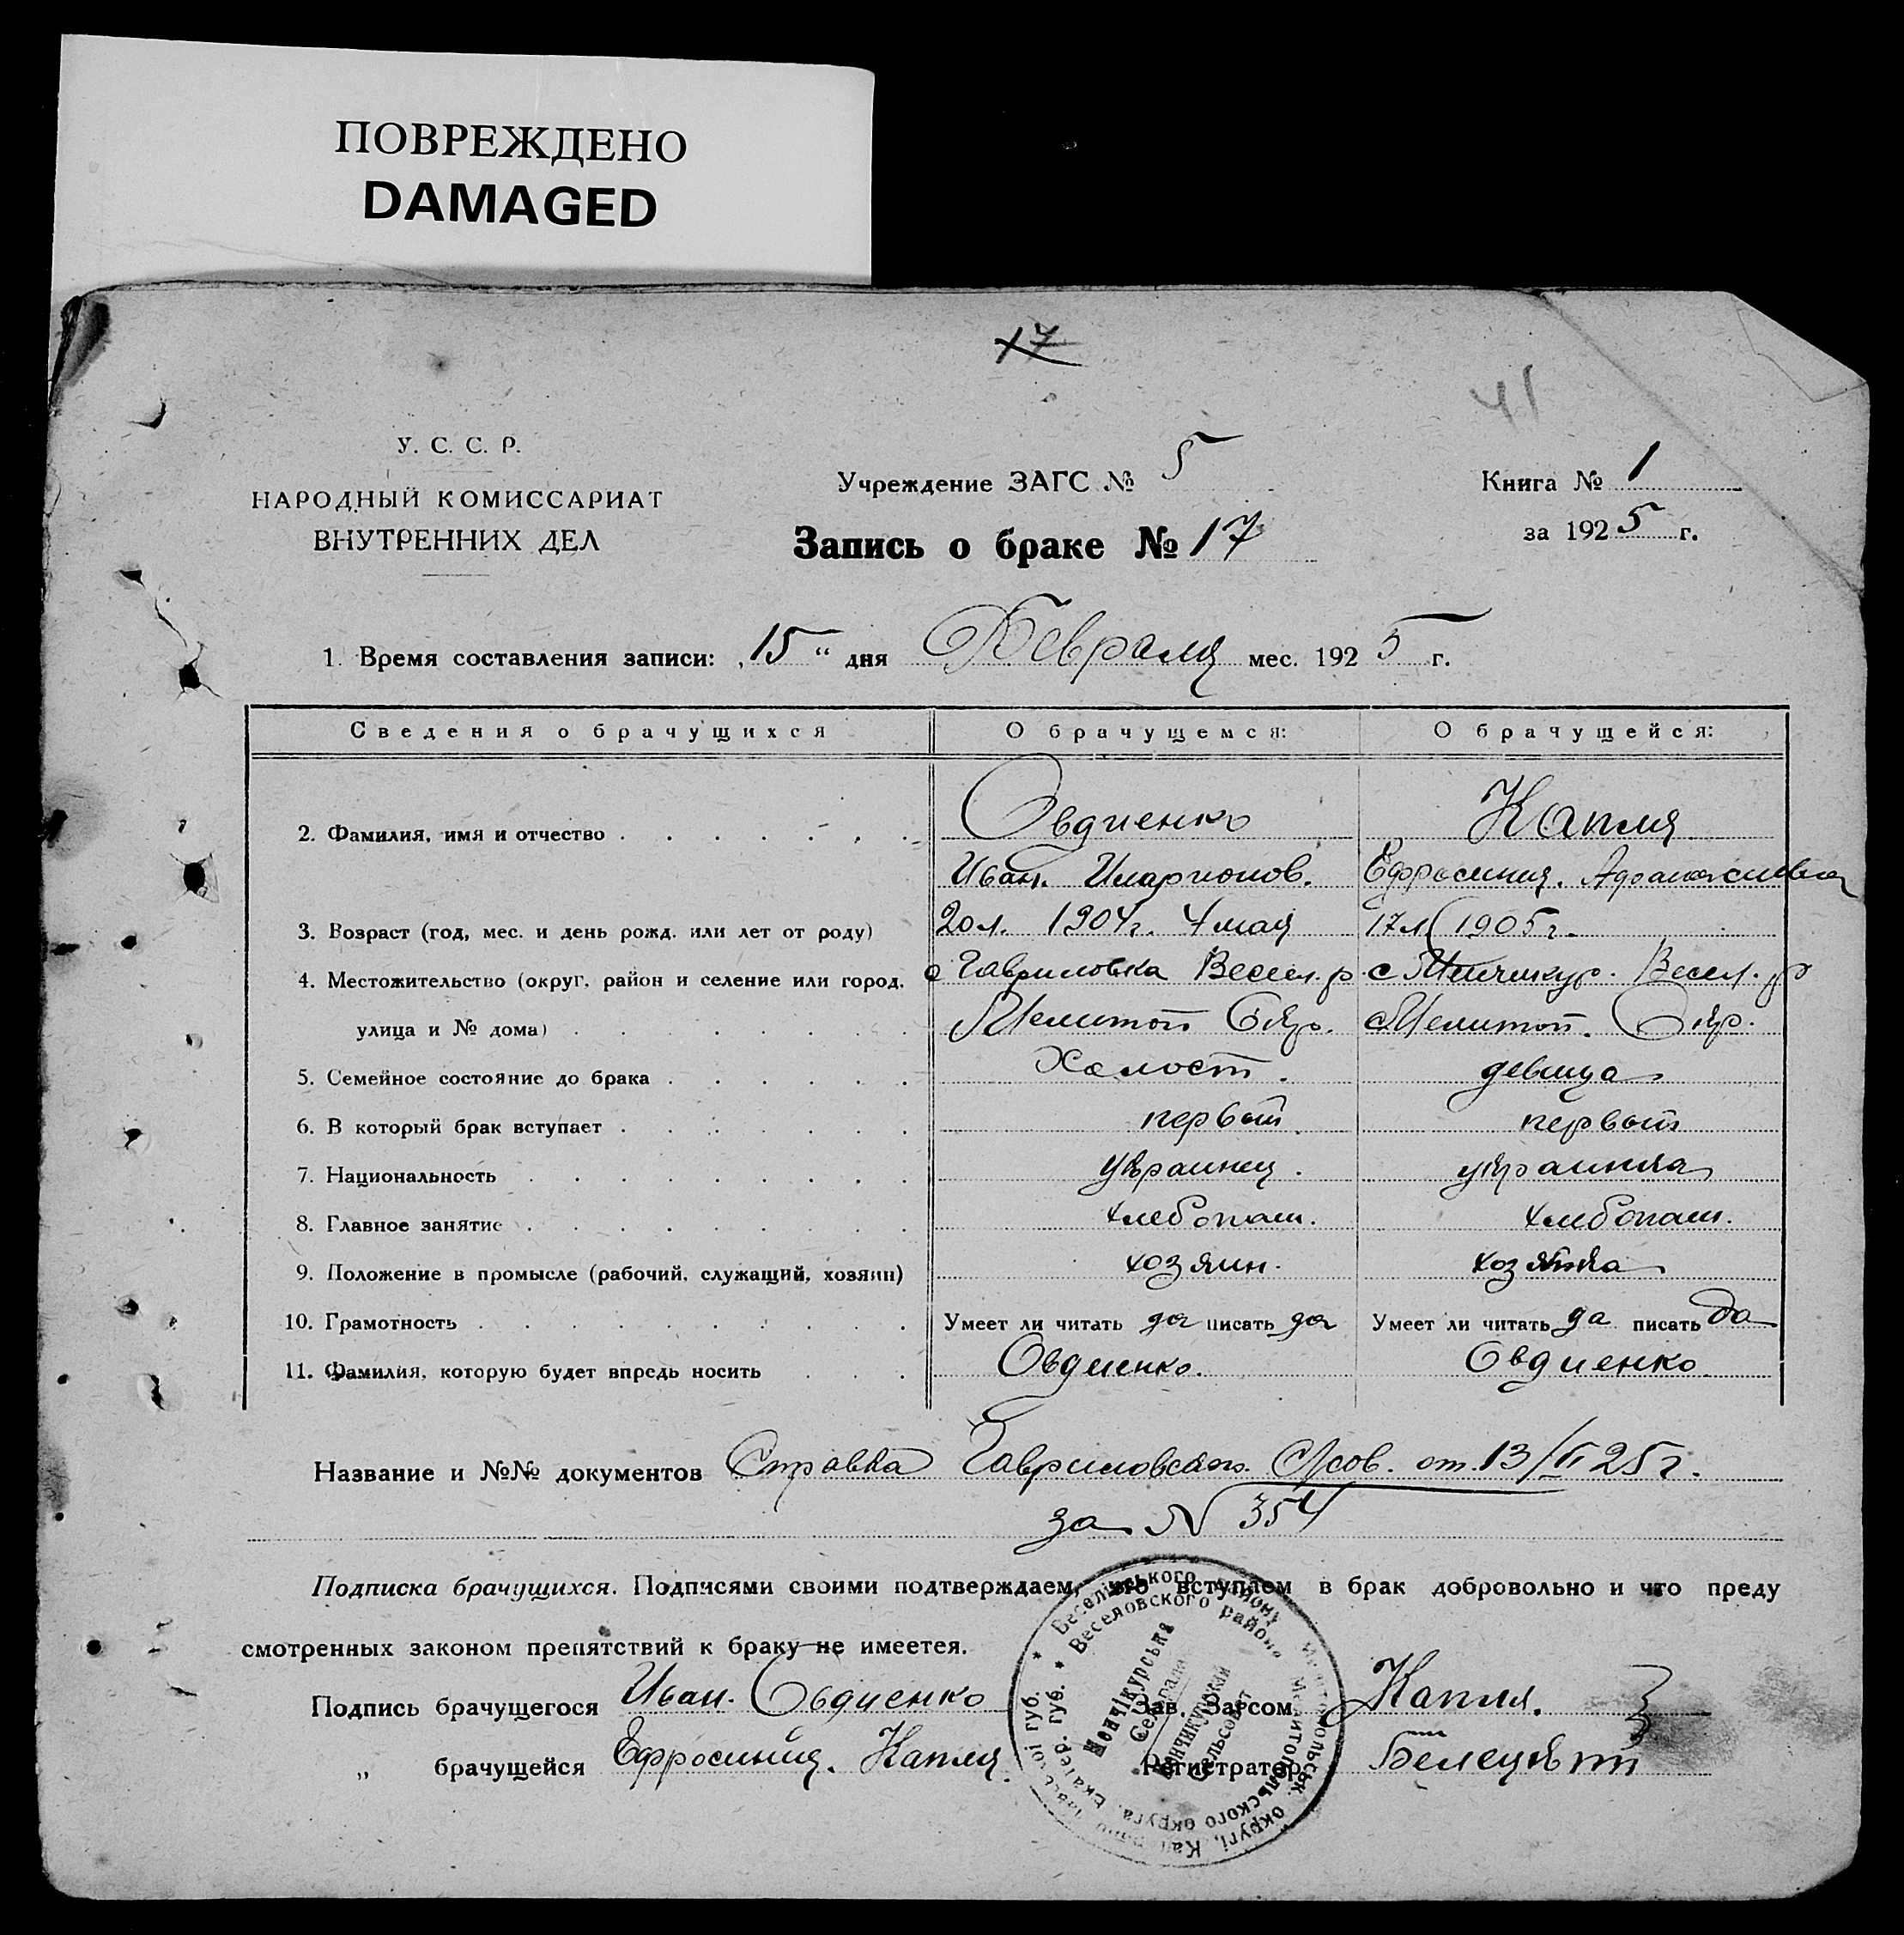 ПОВРЕЖДЕНО
DAMAGED
17
41
У. С. С. Р.
НАРОДНЫЙ КОМИССАРИАТ
ВНУТРЕННИХ ДЕЛ
Учреждение ЗАГС № 5
Запись о браке № 17
Книга № 1
за 1925 г.
1. Время составления записи: „15“ дня Февраля мес. 1925 г.
Сведения о брачущихся О брачущемся: О брачущейся:
2. Фамилия, имя и отчество Овдиенко Капля
Иван. Иларионов. Ефросиния. Афанасиевна
3. Возраст (год, мес. и день рожд. или лет от роду) 20 л. 1904 г. 4 мая 17 л. 1905 г.
4. Местожительство (округ, район и селение или город, с Гавриловка Весел. р. с Менчикур. Весел. р
улица и № дома) Мелитоп Окр. Мелитоп. Окр.
5. Семейное состояние до брака Халост. девица
6. В который брак вступает первый первый
7. Национальность украинец. украинка
8. Главное занятие хлебопаш. хлебопаш.
9. Положение в промысле (рабочий, служащий, хозяин) хозяин. хозяйка
10. Грамотность Умеет ли читать да писать да Умеет ли читать да писать да
11. Фамилия, которую будет впредь носить Овдиенко. Овдиенко
Название и №№ документов Справка Гавриловского С/сов. от 13/II 25 г.
за № 354
Подписка брачущихся. Подписями своими подтверждаем, что вступаем в брак добровольно и что преду
смотренных законом препятствий к браку не имеется.
Подпись брачущегося Иван. Овдиенко Зав. Загсом Капля.
„ брачущейся Ефросиния. Капля. Регистратор Белецький
Веселівського району Мелитопольськ. округі, Кат губ.
Веселовского района Мелитопольского округа, Екатер. губ.
Менчікурська
Сельрада
Менчикурский
Сельсовет